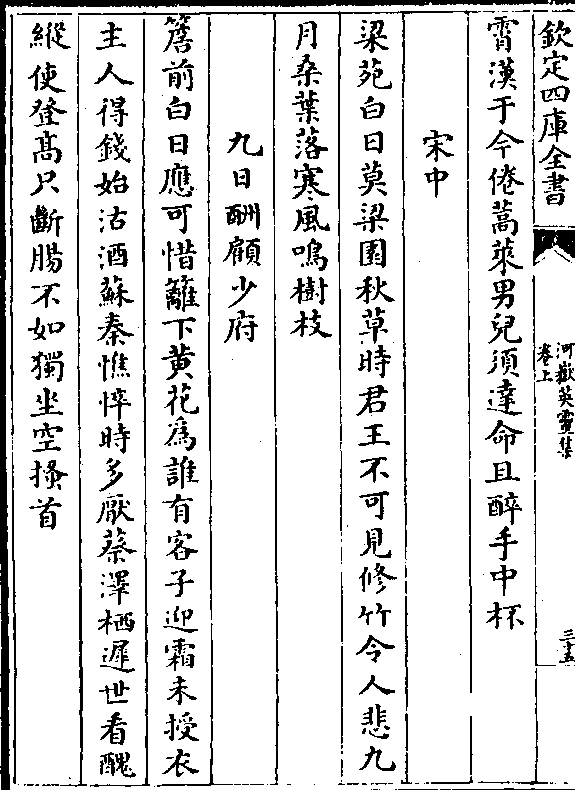 欽定四庫全書
河嶽英靈集
卷上
三十五
霄漢于今倦蒿萊男兒須達命且醉手中杯
宋中
梁苑白日莫梁園秋草時君王不可見修竹令人悲九
月桑葉落寒風鳴樹枝
九日酬顧少府
簷前白日應可惜籬下黄花為誰有客子迎霜未授衣
主人得錢始沽酒蘇秦憔悴時多厭蔡澤栖遲世看醜
縱使登髙只斷腸不如獨坐空搔首